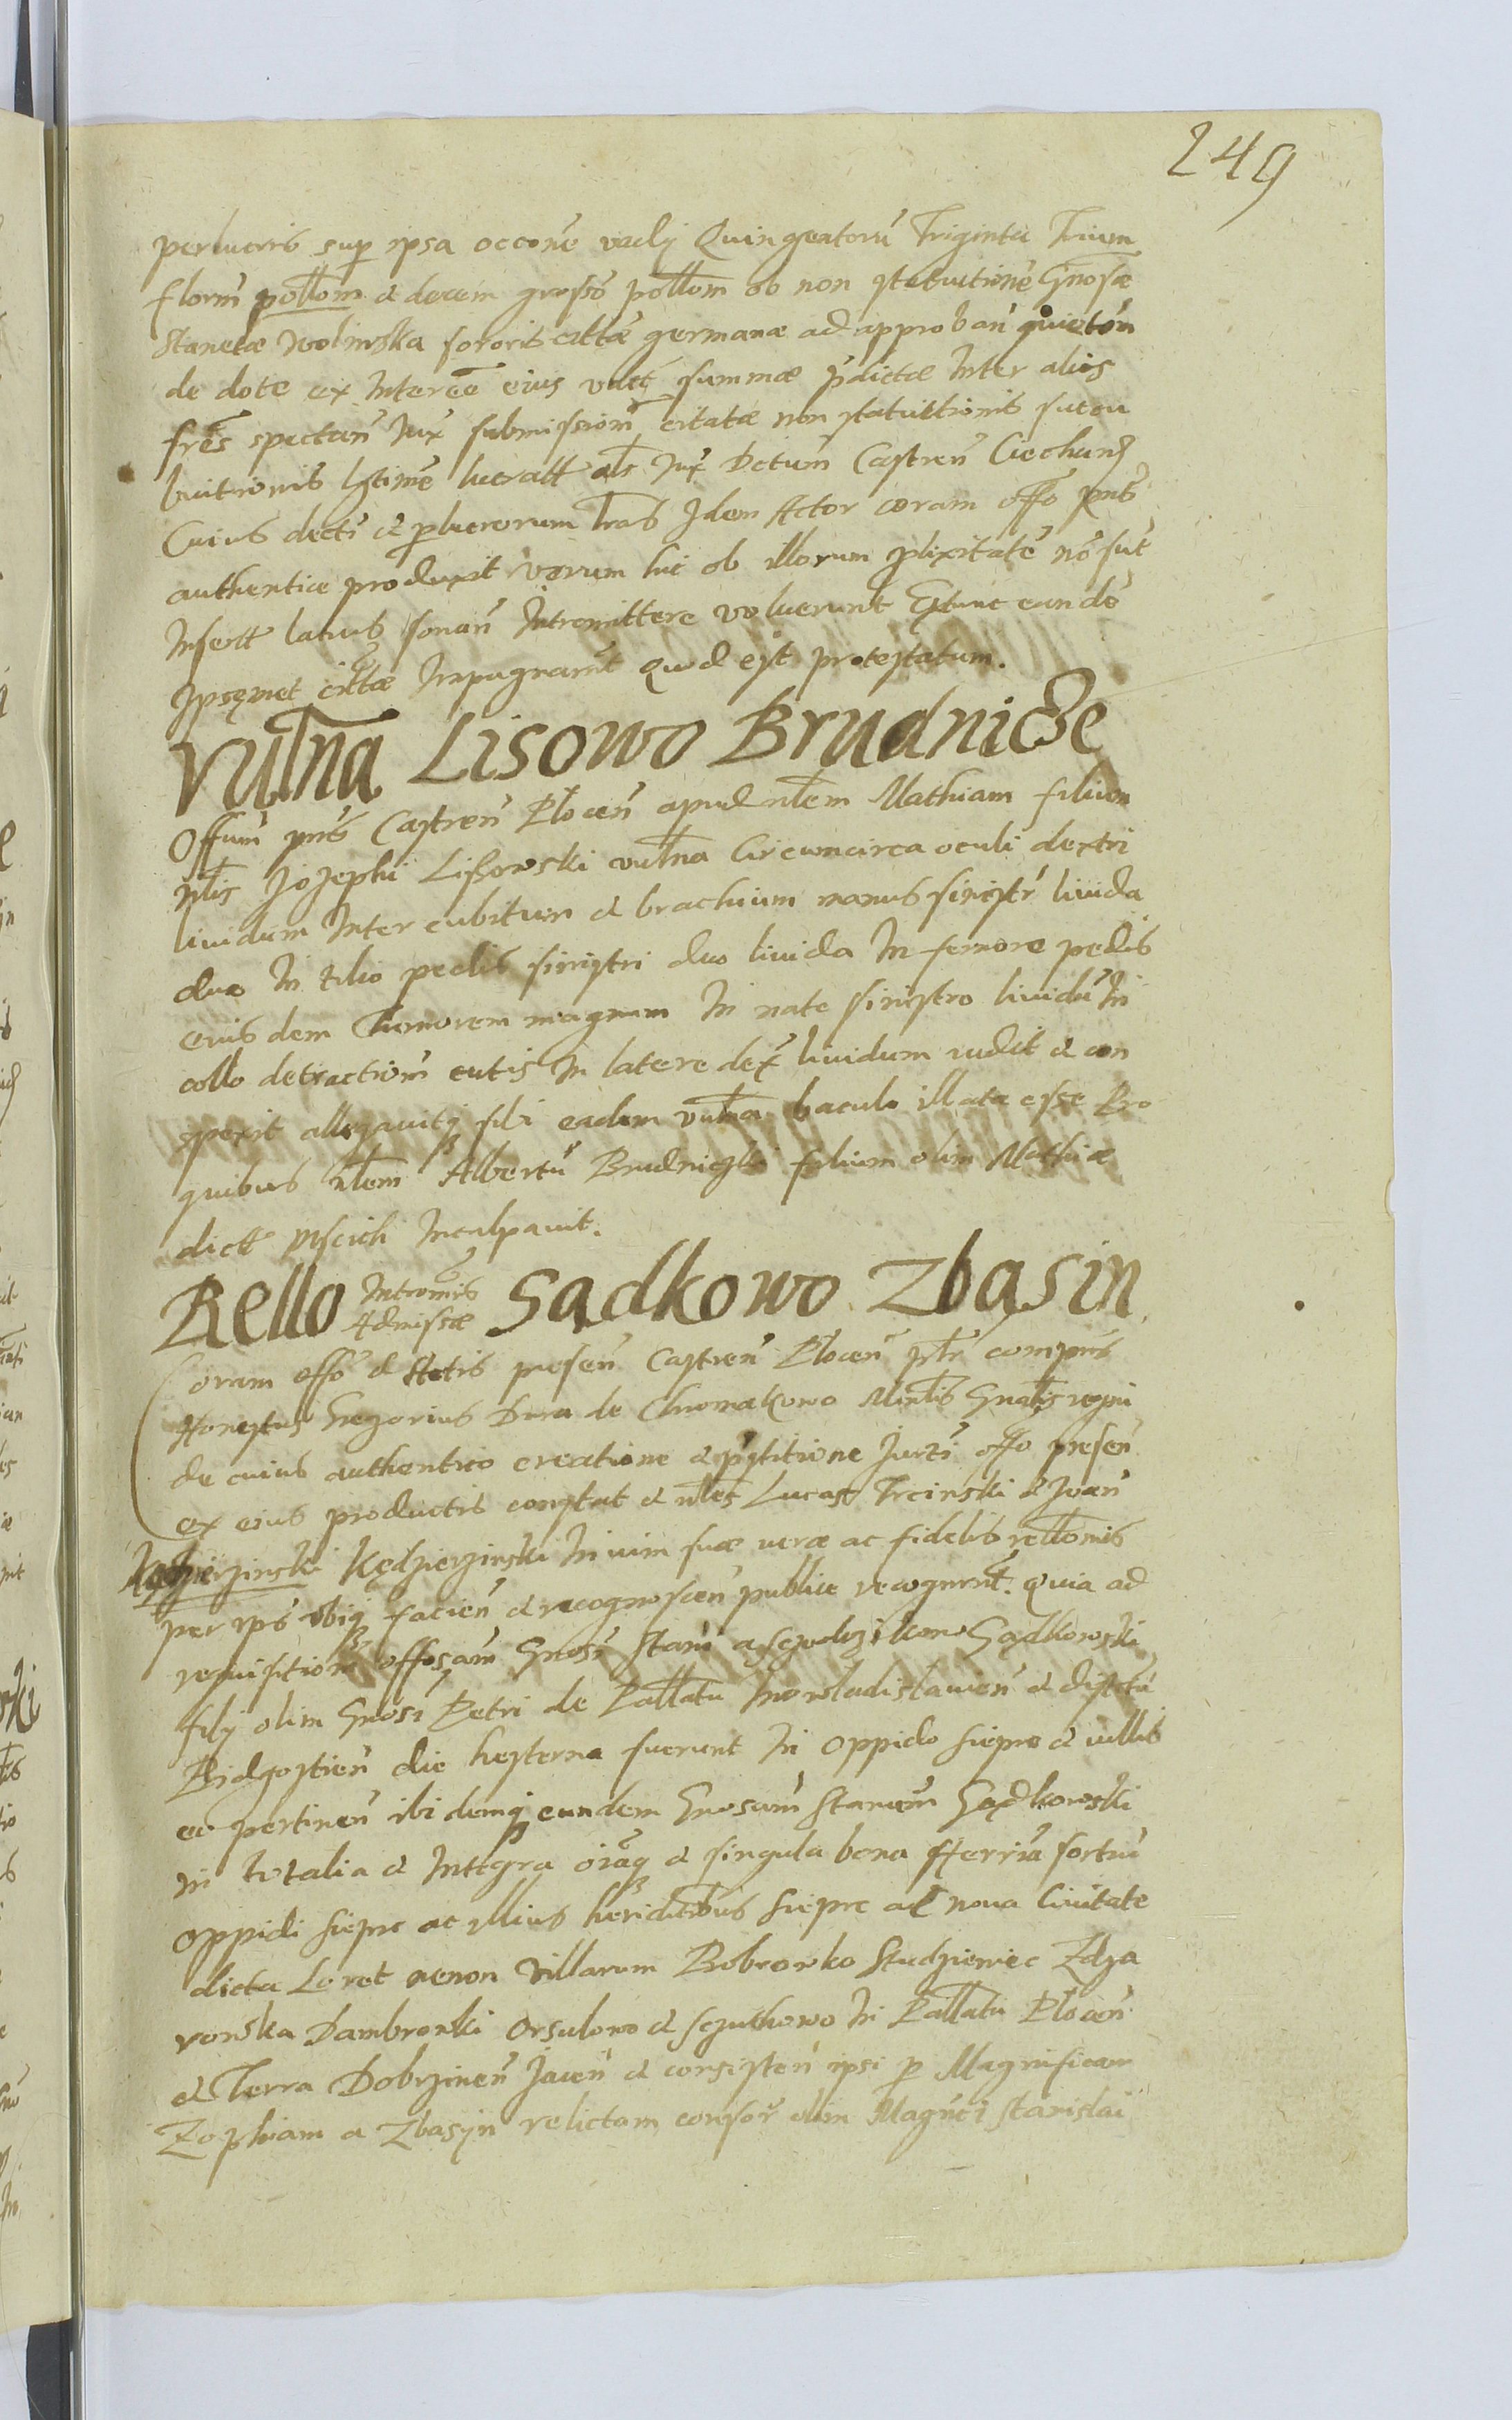 249
perlucris sup ipsa occone vadij Quingentoru Triginta Trium
florm pollom & decem grosso pollom ob non statuitione Gnosæ
Stanetæ Wolinska sororis cittæ germanæ ad approban quieton
de dote ex Interce eius vdct summæ pdictæ Inter alios
fres spectan Iux submission citatæ non statuitionis sucu
buitionis lgtime lucratt als Iux Dctum Castren Ciechan
Cuius decti & plucrorum lras Idem Actor coram offo pnti
authentice produxit verum hic ob illorum plixitate no sut
Insertt latius sonan Intromittere voluerunt Extunc eunde
Ipsemet cittæ Impugnarut quod est protestatum.
Vulna Lisowo Brudnicze
Offium pns Castren Plocen apud nlem Mathiam filium
nlis Josephi Lissowski vulna Circumcirca oculi dextri
liuidum Inter cubitum & brachium manus sinistr liuida
duo In tibio pedis sinistri duo liuida In femore pedis
eius dem Thumorem magnum In nate sinistro liuidu In
collo detraction cutis In latere dex liuidum vidit & con
spexit allegauitq sibi eadem vulna baculo illata esse Pro
quibus nlem Albertu Brudniczki filium olim Mathiæ
dictt Inculpauit.
Rello Intromis Admissæ Sądkowo Zbąsin
Coram offo & Actis presen Castren Plocen psr compns
Honestus Gregorius Dura de Chromakowo Minlis Gnalis regni
de cuius authentico creatione & pstitione Jurti offo presen
ex eius productis constat & nles Lucas Trcinski & Joan
Kędzierzinski Kędzierzinski In vim suæ veræ ac fidelis rellonis
per ips vbiq facien & recognoscen publice recogurnt. quia ad
requisition offosam Gnosi Stani a Sądkowski
filij olim Gnosi Petri de Pallatu Inowladislauien & distctu
Bidgostien die hesterna fuerunt In oppido Siepre & villis
eo pertinen ibi demq eundem Gnosum Stanum Sądkowski
in totalia & Integra oiaq & singula bona Herria sortiu
oppidi Siepre ac illius heriditibus Siepre al noua Ciuitate
dicta Loret necnon villarum Bobrowko Studzieniec Zdza
ronska Dambronki Orsulowo & Szczuthowo In Pallatu Plocen
& Terra Dobrzinen Jacen & consisten ipsi p Magnificam
Zophiam a Zbasyn relictam consor olim Magnci Stanislai